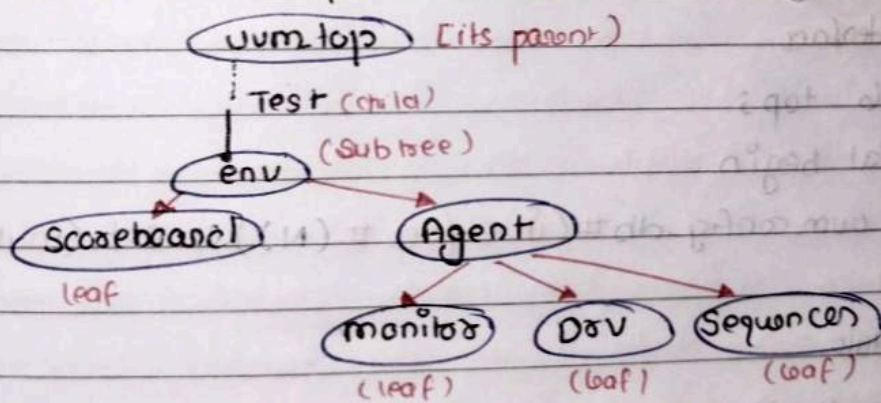 uvm top [its parent)
Test (child)
(Subtree)
env
Scoreboard Agent
leaf
monitor Drv Sequencer
(leaf) (leaf) (leaf)